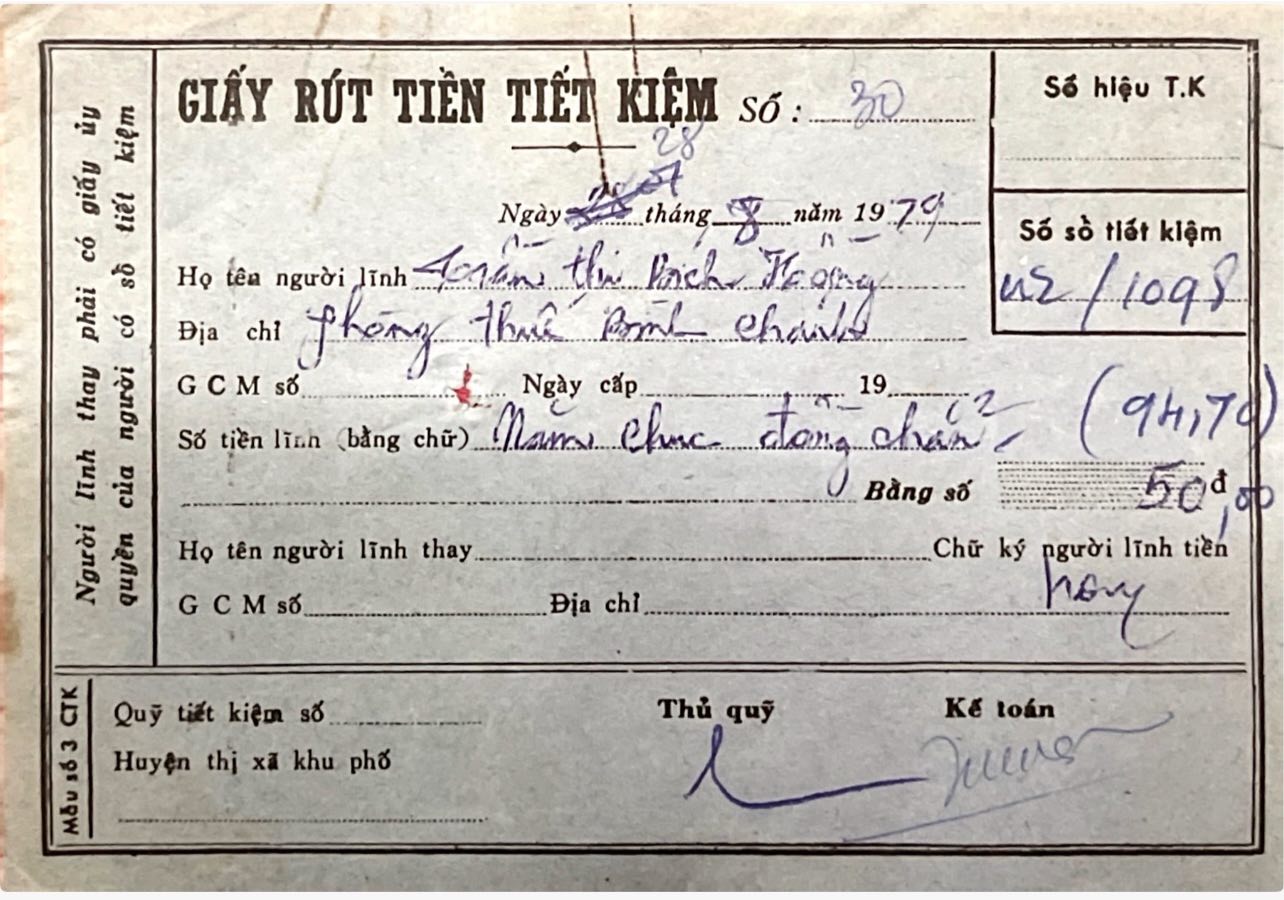 Người lĩnh thay phải có giấy ủy
quyền của người có sổ tiết kiệm
GIẤY RÚT TIỀN TIẾT KIỆM SỐ : 30
28
Ngày tháng 8 năm 1979
Họ tên người lĩnh Trần thị Bích Hồng
Địa chỉ phòng thuế Bình Chánh
G C M số Ngày cấp 19
Số tiền lĩnh (bằng chữ) Năm chục đồng chẵn
(94,70)
Bằng số 50đ,00
Họ tên người lĩnh thay Chữ ký người lĩnh tiền
G C M số Địa chỉ
Số hiệu T.K
Số sổ tiết kiệm
/1098
Mẫu số 3 CTK
Quỹ tiết kiệm số
Huyện thị xã khu phố
Thủ quỹ
Kế toán